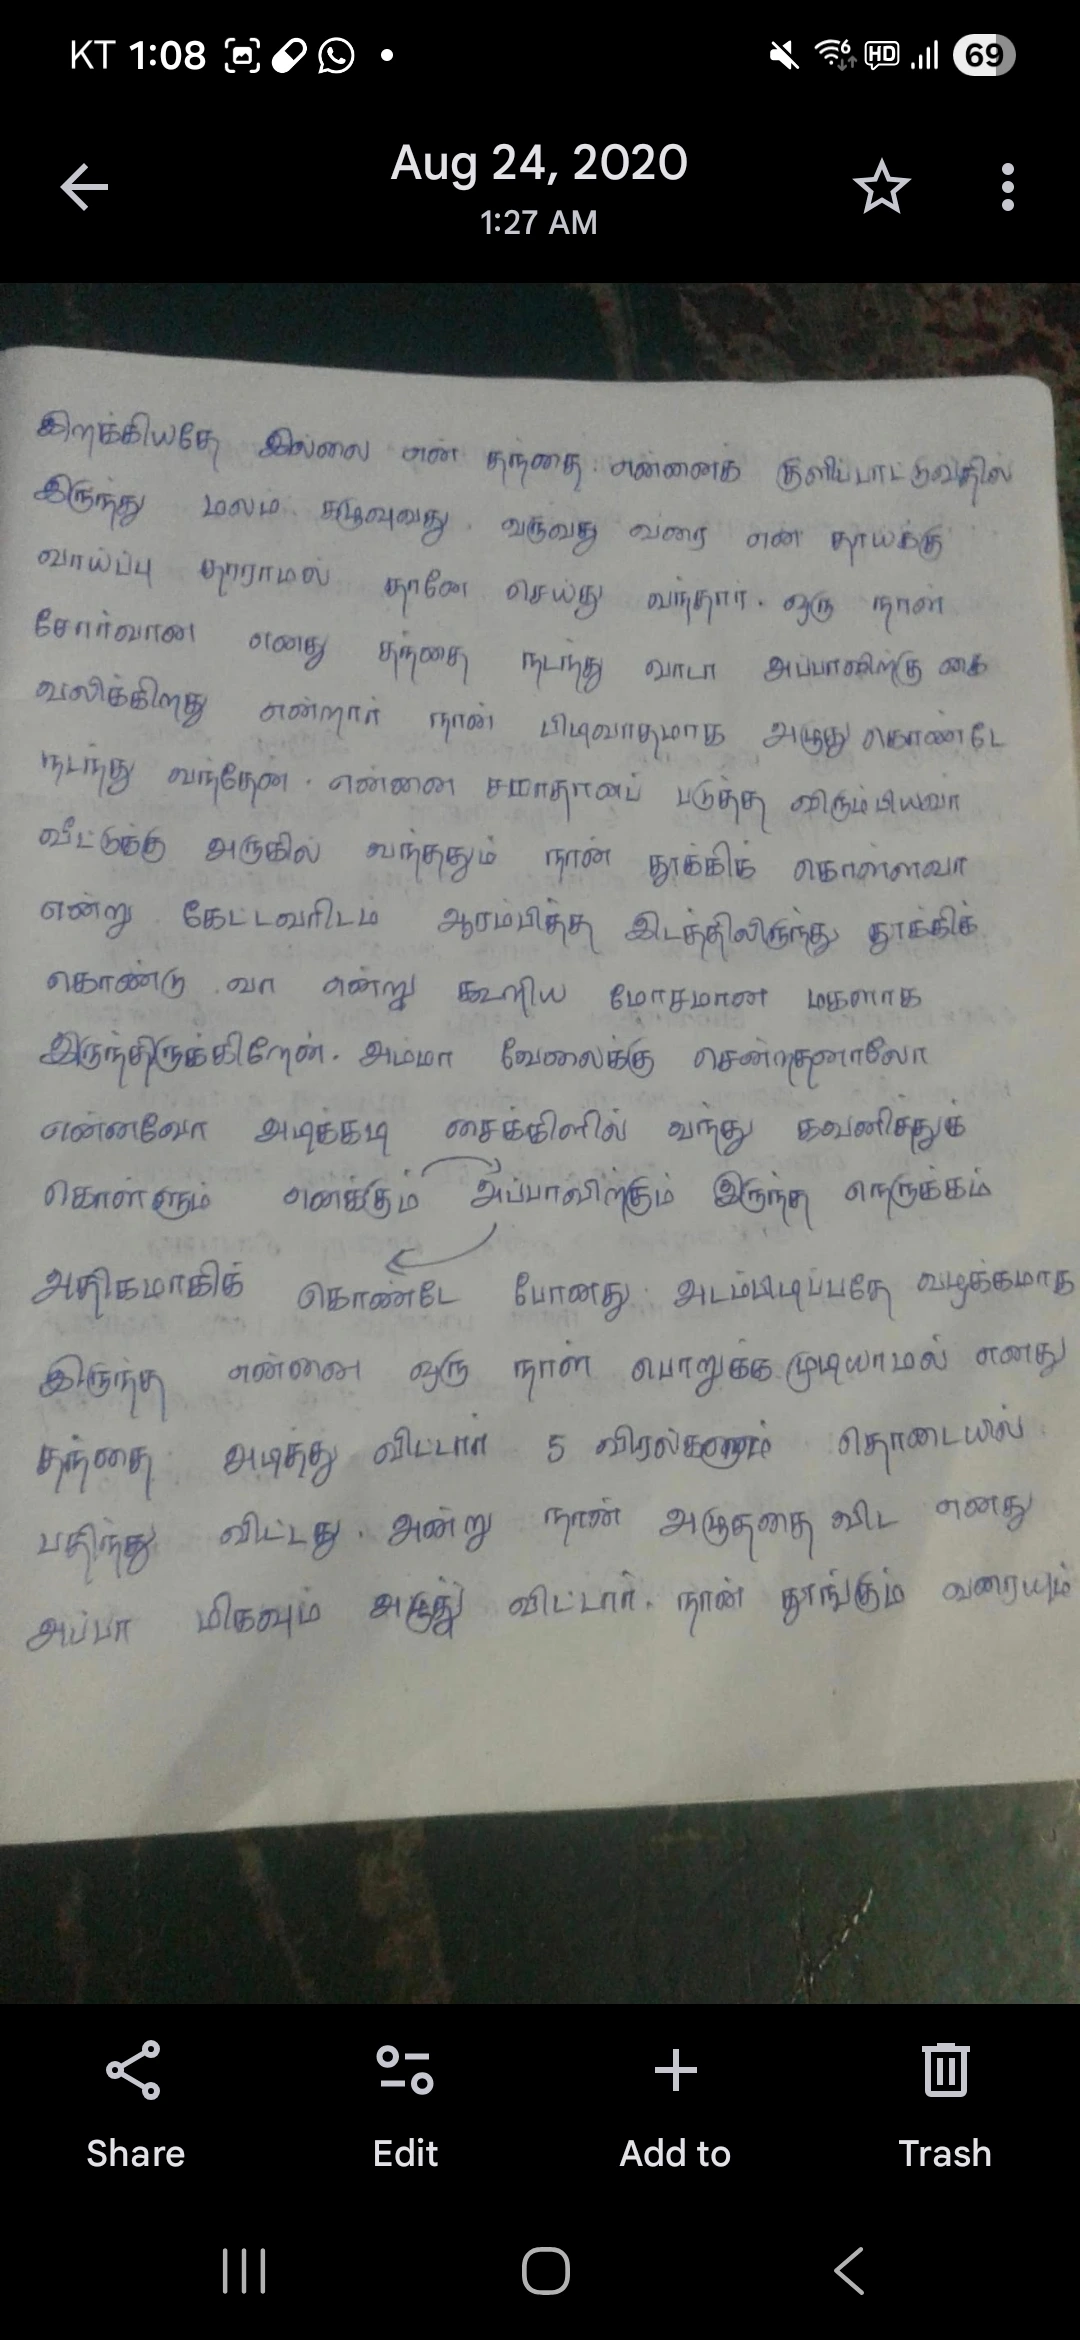 KT 1:08 HD 69
Aug 24, 2020
1:27 AM
இறக்கியதே இல்லை என் தந்தை. என்னைக் குளிப்பாட்டுவதில்
இருந்து மலம் கழுவுவது வருவது வரை என் தாய்க்கு
வாய்ப்பு தாராமல் தானே செய்து வந்தார். ஒரு நாள்
சோர்வான எனது தந்தை நடந்து வாடா அப்பாவிற்கு கை
வலிக்கிறது என்றார் நான் பிடிவாதமாக அழுது கொண்டே
நடந்து வந்தேன். என்னை சமாதானப் படுத்த விரும்பியவர்
வீட்டுக்கு அருகில் வந்ததும் நான் தூக்கிக் கொள்ளவா
என்று கேட்டவரிடம் ஆரம்பித்த இடத்திலிருந்து தூக்கிக்
கொண்டு வா என்று கூறிய மோசமான மகளாக
இருந்திருக்கிறேன். அம்மா வேலைக்கு சென்றதனாலோ
என்னவோ அடிக்கடி சைக்கிளில் வந்து கவனித்துக்
கொள்ளும் எனக்கும் அப்பாவிற்கும் இருந்த நெருக்கம்
அதிகமாகிக் கொண்டே போனது. அடம்பிடிப்பதே வழக்கமாக
இருந்த என்னை ஒரு நாள் பொறுக்க முடியாமல் எனது
தந்தை அடித்து விட்டார் 5 விரல்களும் தொடையில்
பதிந்து விட்டது. அன்று நான் அழுததை விட எனது
அப்பா மிகவும் அழுது விட்டார். நான் தூங்கும் வரையும்
Share Edit Add to Trash